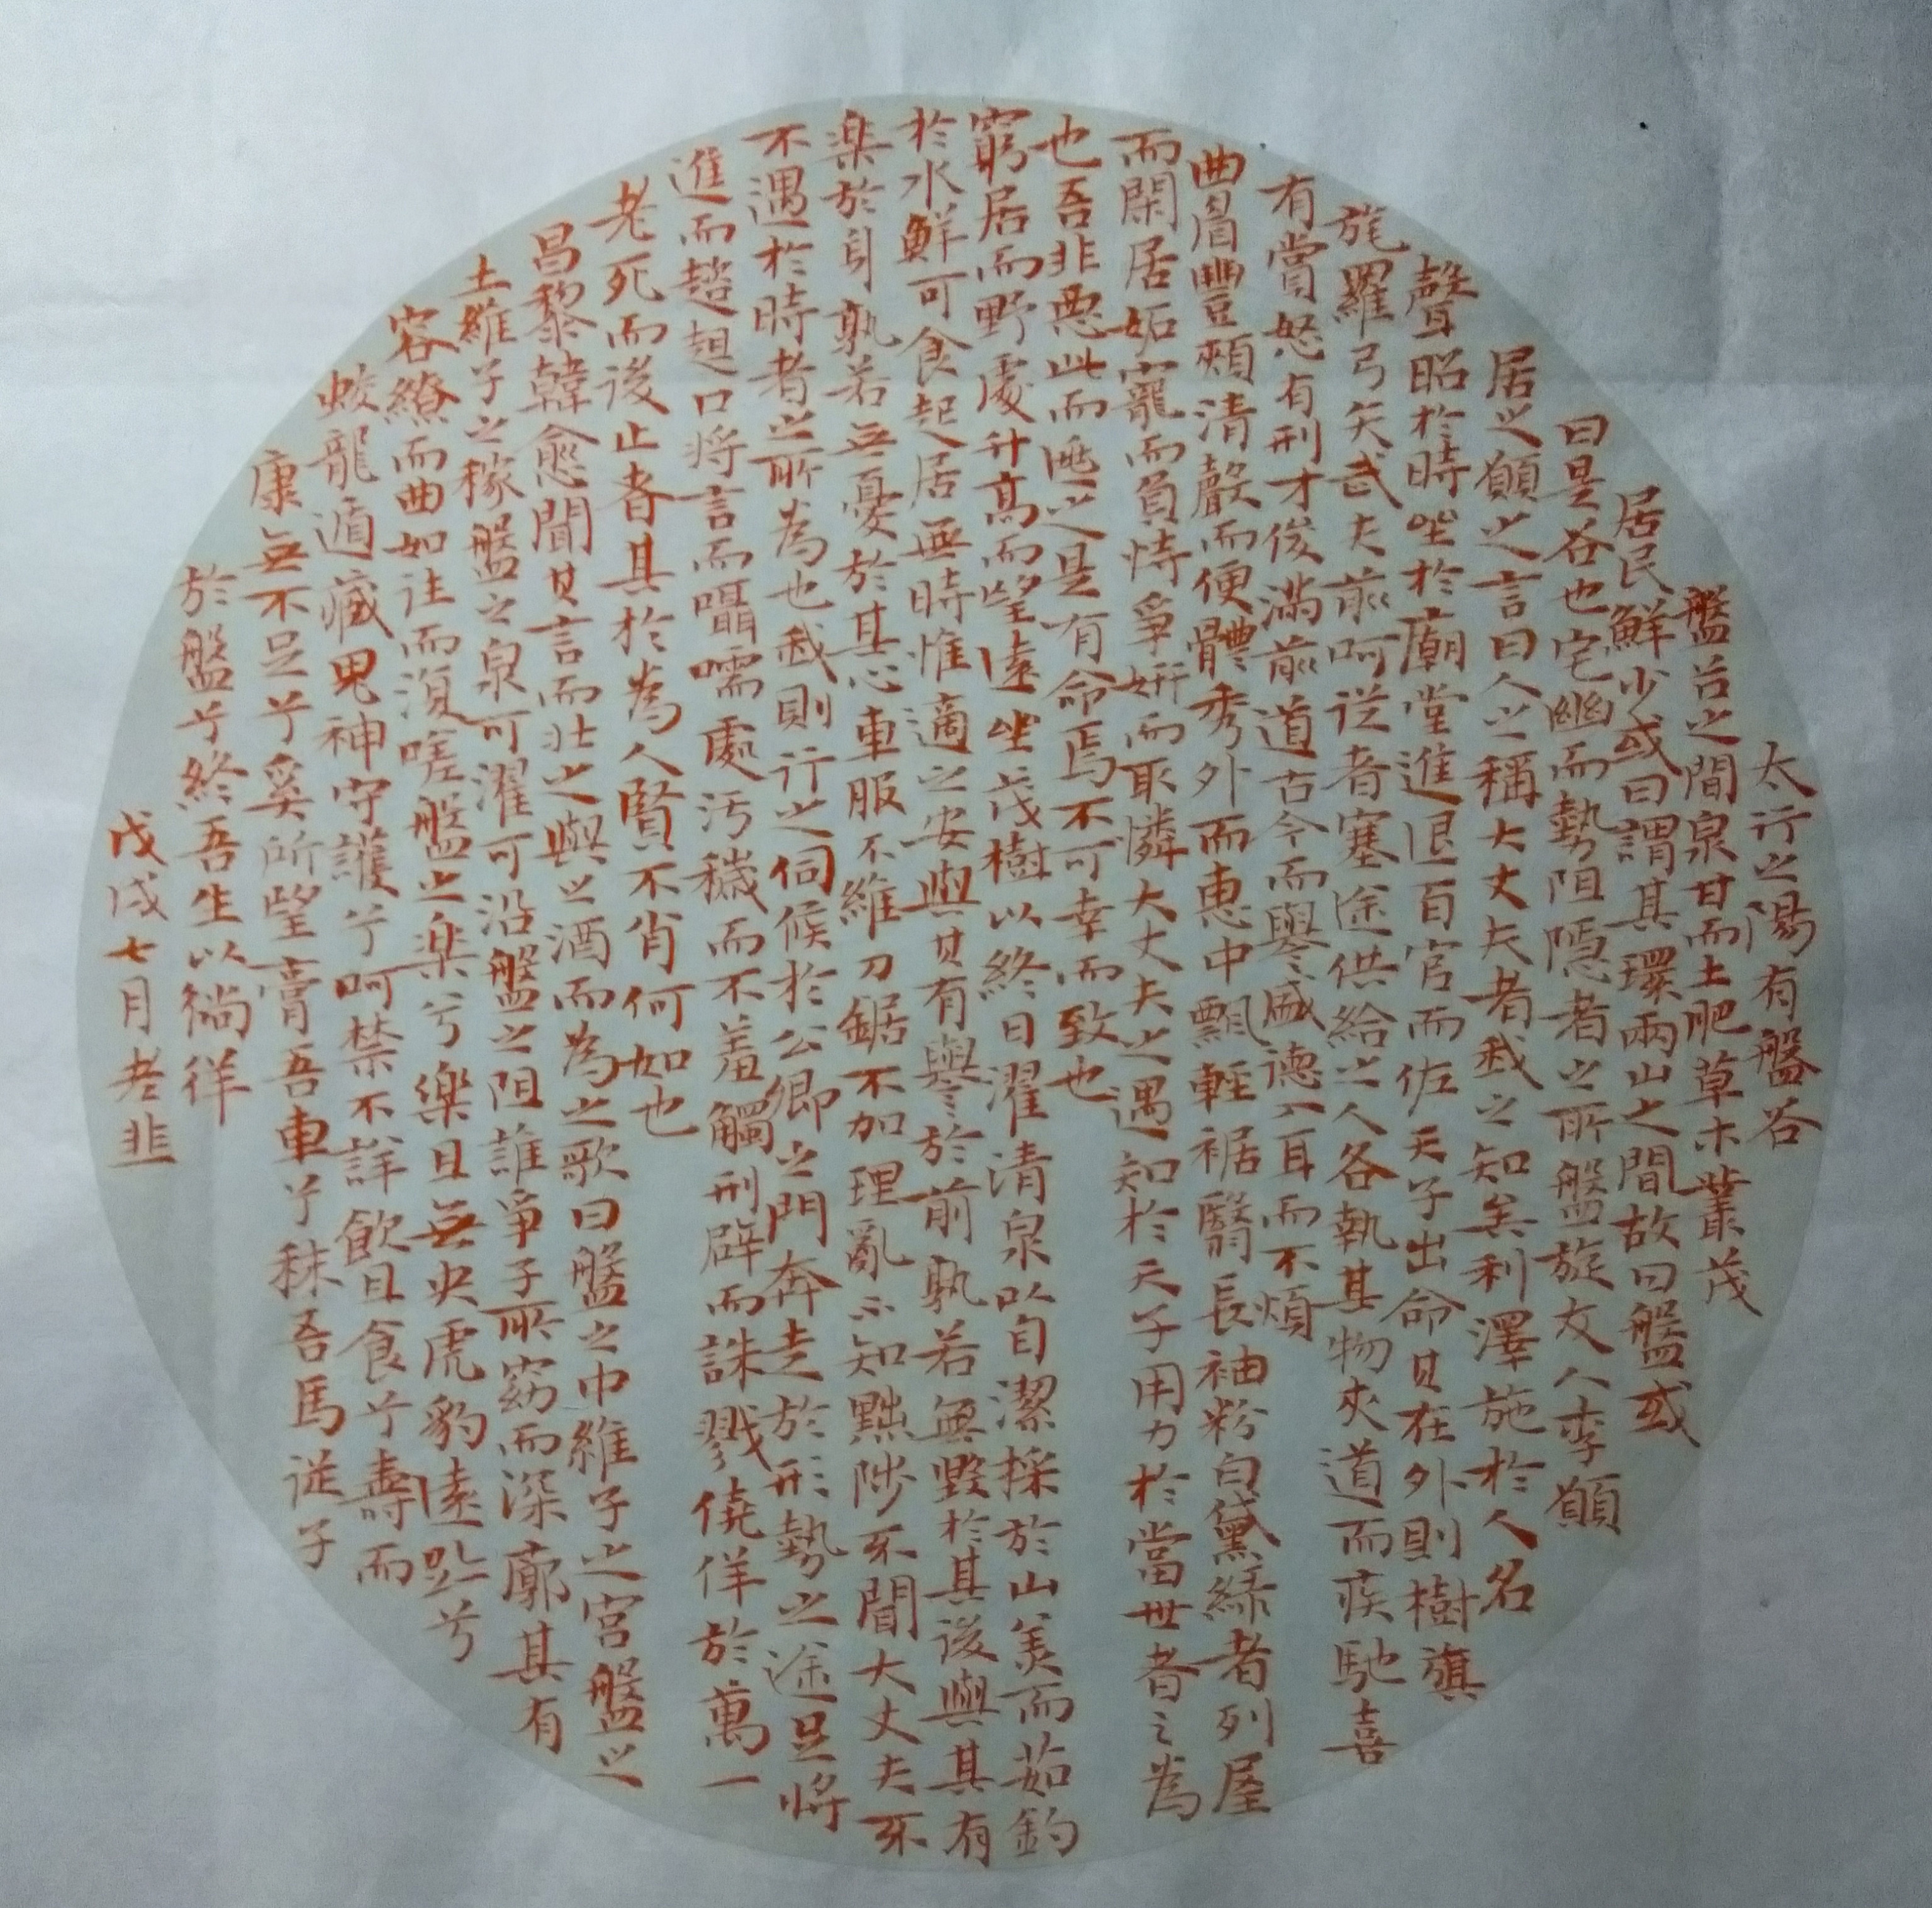 太行之陽有盤谷
盤谷之間泉甘而土肥草木叢茂
居民鮮少或曰謂其環兩山之間故曰盤或
曰是谷也宅幽而勢阻隱者之所盤旋友人李愿
居之愿之言曰人之稱大丈夫者我之知矣利澤施於人名
聲昭於時坐於廟堂進退百官而佐天子出命其在外則樹旗
旄羅弓矢武夫前呵從者塞途供給之人各執其物夾道而疾馳喜
有賞怒有刑才俊滿前道古今而譽盛德入耳而不煩
曲眉豐頰清聲而便體秀外而惠中飄輕裾翳長袖粉白黛綠者列屋
而閑居妬寵而負恃爭妍而取憐大丈夫之遇知於天子用力於當世者之為
也吾非惡此而逃之是有命焉不可幸而致也
窮居而野處升高而望遠坐茂樹以終日濯清泉以自潔採於山美而茹釣
於水鮮可食起居無時惟適之安與其有譽於前孰若無毀於其後與其有
樂於身孰若無憂於其心車服不維刀鋸不加理亂不知黜陟不聞大丈夫不
不遇於時者之所為也我則行之伺候於公卿之門奔走於形勢之途足將
進而趑趄口將言而囁嚅處污穢而不羞觸刑辟而誅戮僥倖於萬一
老死而後止者其於為人賢不肖何如也
昌黎韓愈聞其言而壯之與之酒而為之歌曰盤之中維子之宮盤之
土維子之稼盤之泉可濯可沿盤之阻誰爭子所窈而深廓其有
容繚而曲如往而復嗟盤之樂兮樂且無央虎豹遠跡兮
蛟龍遁藏鬼神守護兮呵禁不詳飲且食兮壽而
康無不足兮奚所望膏吾車兮秣吾馬從子
於盤兮終吾生以徜徉
戊戌七月老韭